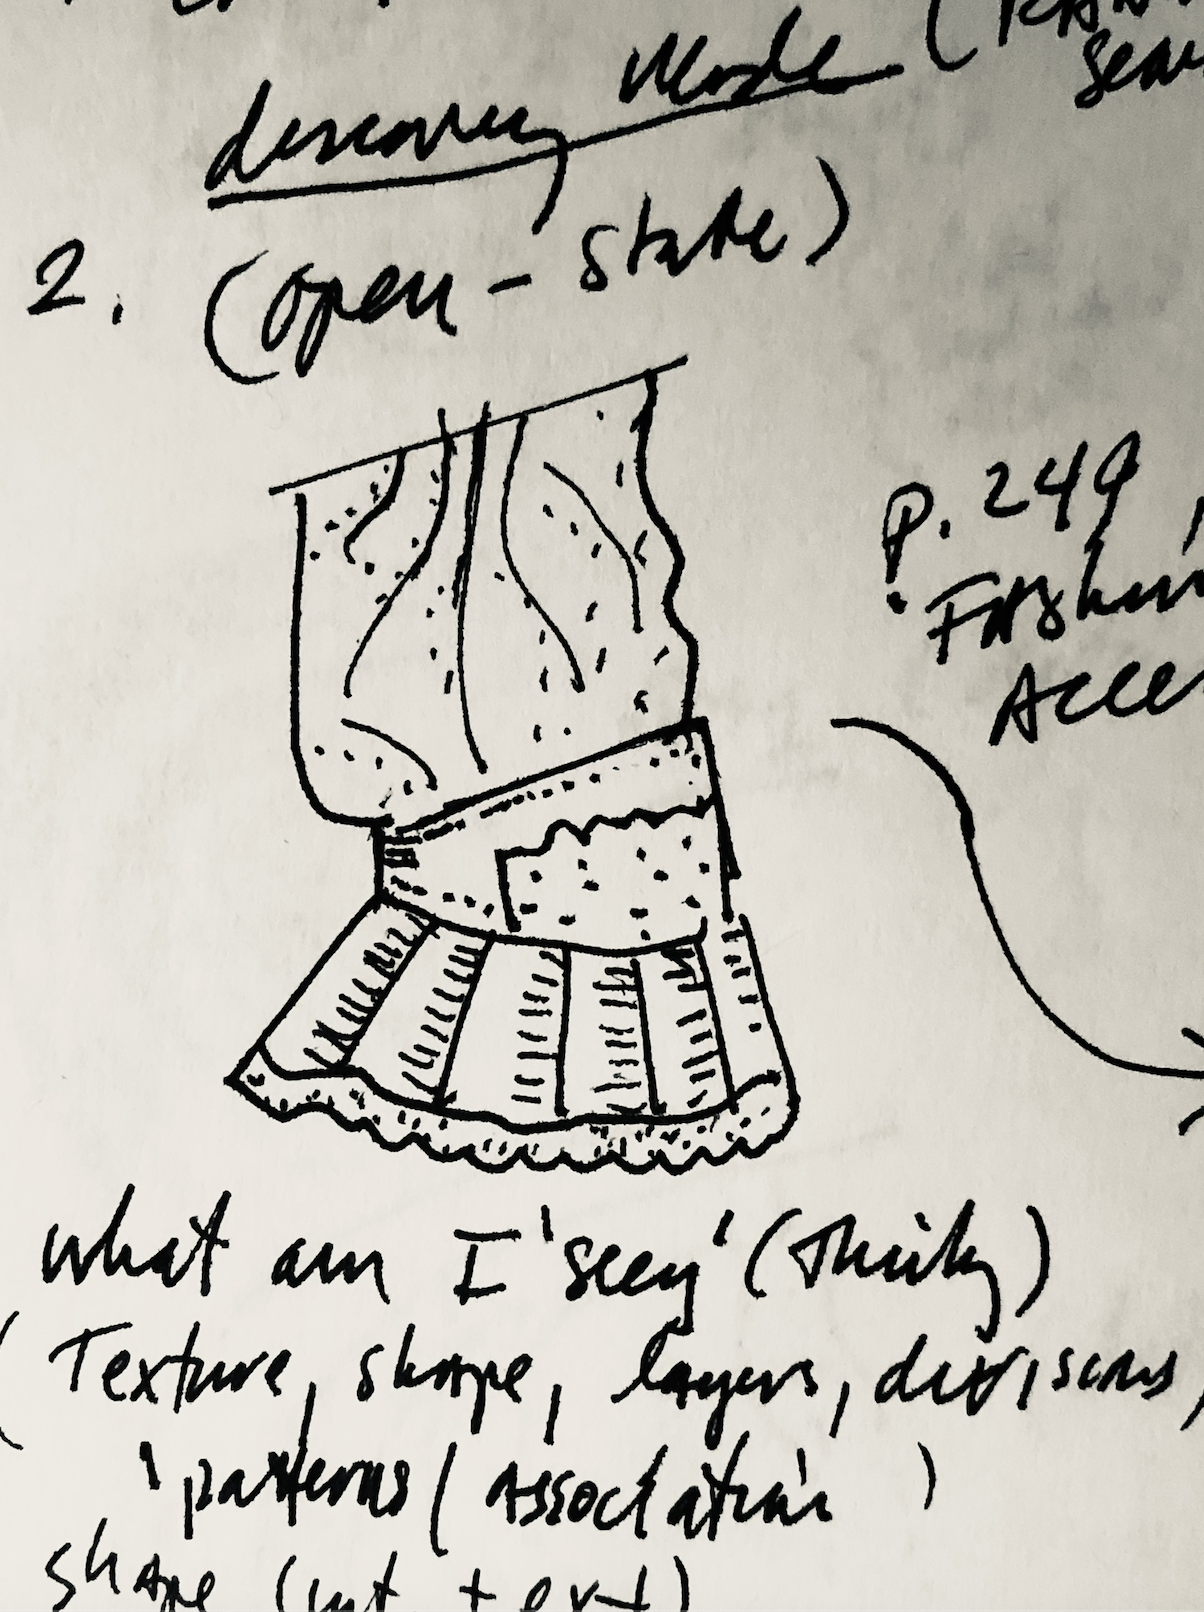 discovery Mode (
2. (open - state)
P. 249
what am I 'seeg' (Thinkg)
(Texture, shape, layers, divisions,
'patterns (Association )
shape (int. + ext)